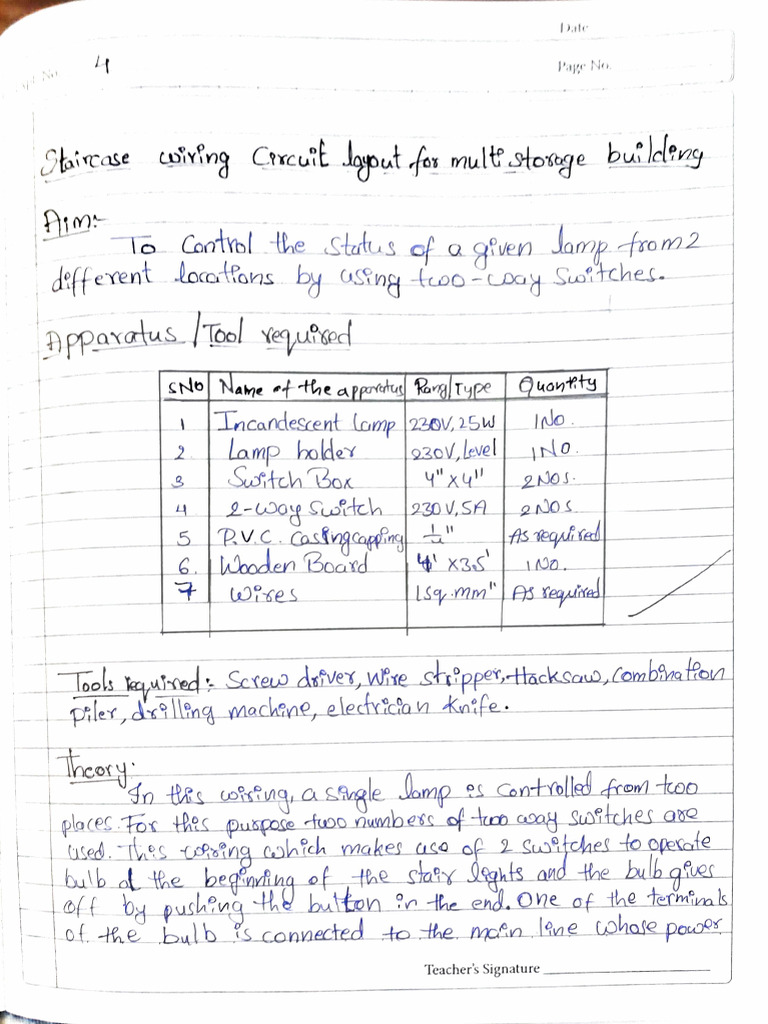 Date
Expt. No. 4
Page No.
Staircase wiring Circuit layout for multi storage building
Aim:-
To Control the Status of a given lamp from 2
different locations by using two-way Switches.
Apparatus/Tool required
S.NO Name of the apparatus Rang/Type Quantity
1 Incandescent lamp 230V, 25W 1No.
2. Lamp holder 230V, Level 1NO.
3 Switch Box 4" x 4" 2NOS.
4 2-way Switch 230V, 5A 2NOS
5 P.V.C. Casingcapping As required
6. Wooden Board 4' x 3.5' 1No.
7 Wires 1sq.mm" As required
Tools required:- Screw driver, wire stripper, Hacksaw, Combination
piler, drilling machine, electrician Knife.
Theory:
In this wiring, a single lamp is controlled from two
places. For this purpose two numbers of two way switches are
used. This wiring which makes use of 2 switches to operate
bulb at the beginning of the stair lights and the bulb gives
off by pushing the button in the end. One of the terminals
of the bulb is connected to the main line whose power
Teacher's Signature